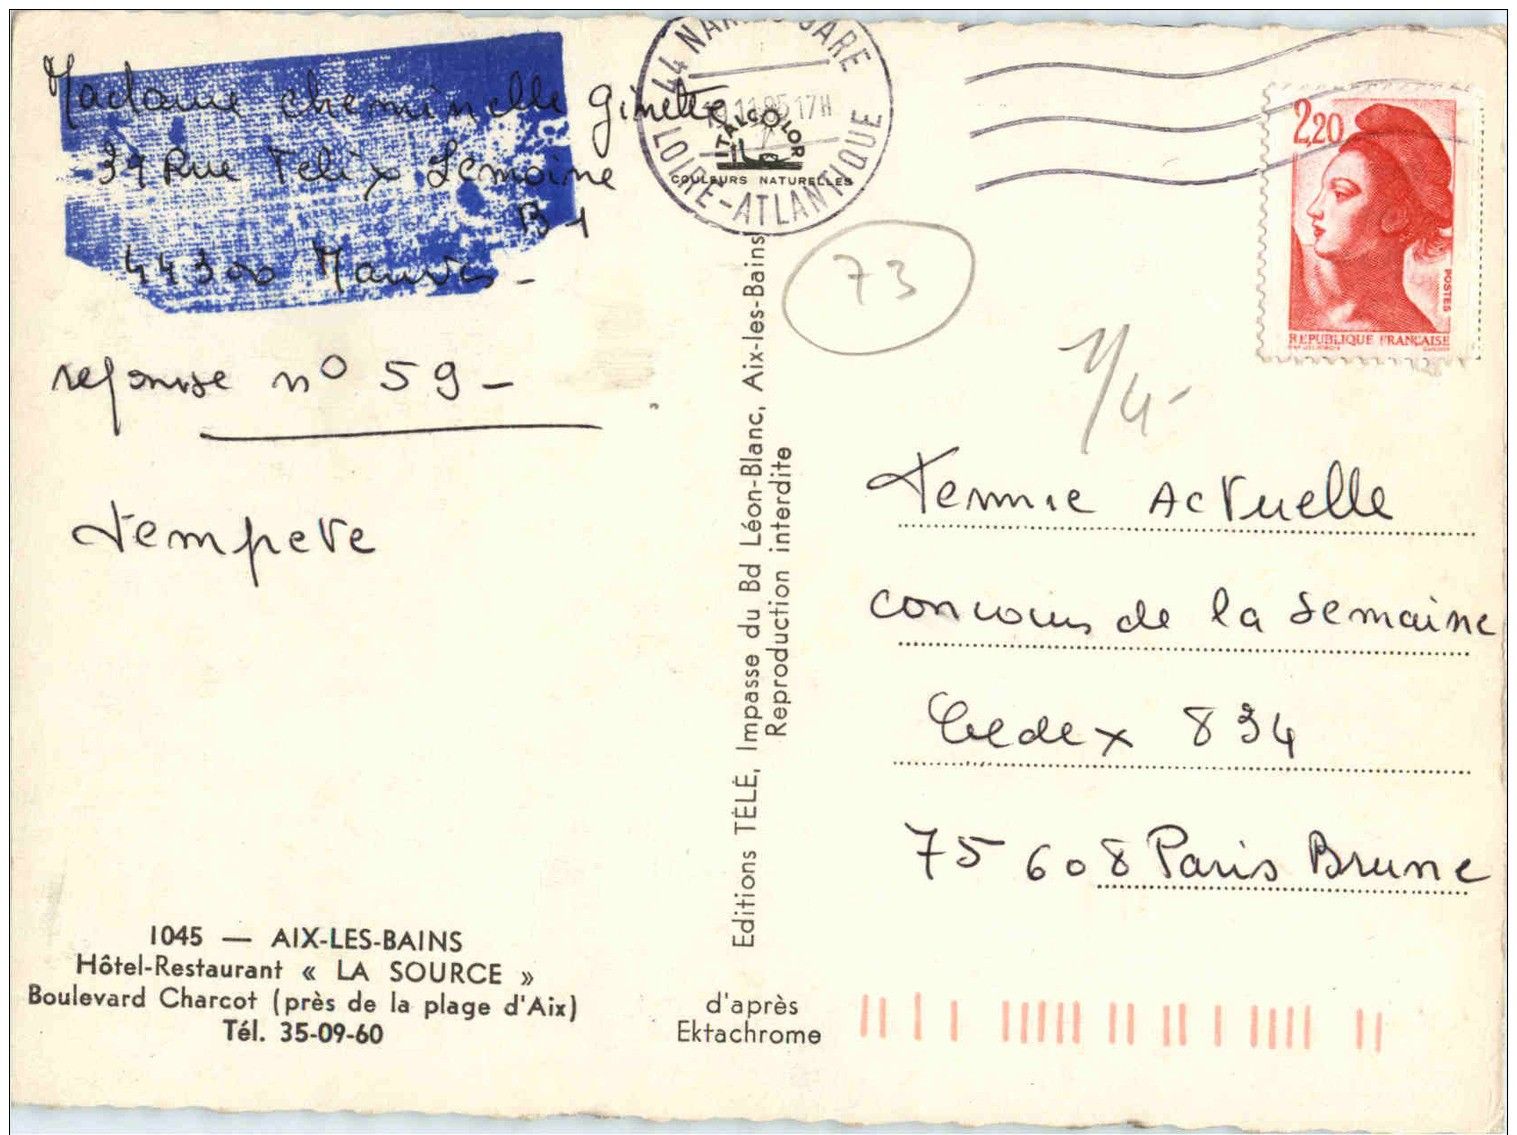 Madame cheminelle Ginette
39 Rue Felix Lemoine
B1
44300 Nantes -
reponse n° 59 -
tempete
1045 — AIX-LES-BAINS
Hôtel-Restaurant « LA SOURCE »
Boulevard Charcot (près de la plage d'Aix)
Tél. 35-09-60
44 NANTES GARE
11 85 17H
LOIRE-ATLANTIQUE
ITALCOLOR
COULEURS NATURELLES
Editions TÉLÉ, Impasse du Bd Léon-Blanc, Aix-les-Bains
Reproduction interdite
d'après
Ektachrome
73
2,20
POSTES
REPUBLIQUE FRANÇAISE
1/4-
Femme Actuelle
concours de la semaine
Cedex 834
75608 Paris Brune